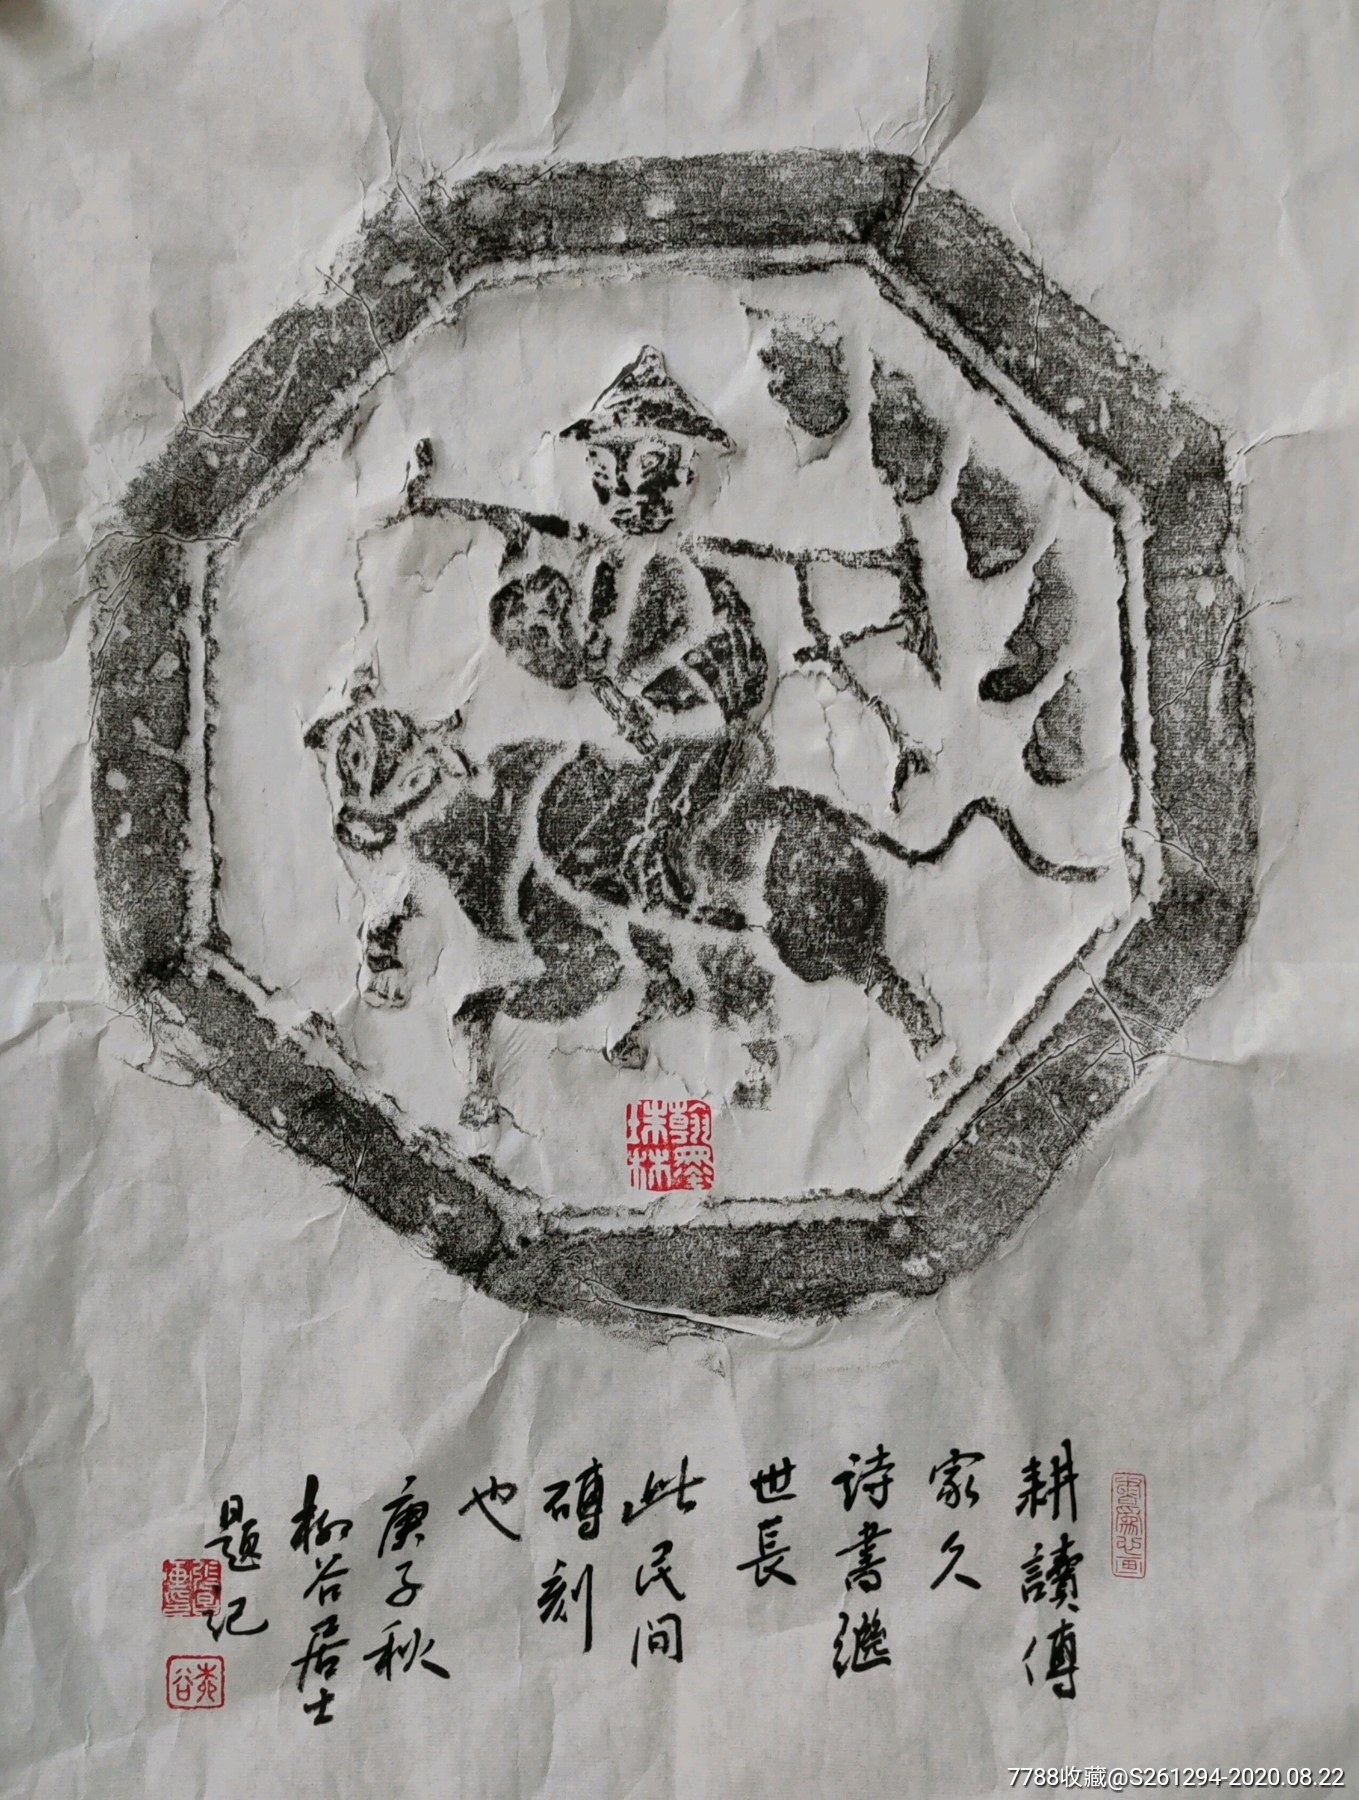 耕讀傳
家久
詩書繼
世長
此民间
磚刻
也
庚子秋
柳谷居士
題记
翰墨
珠林
柳谷
7788收藏@S261294-2020.08.22